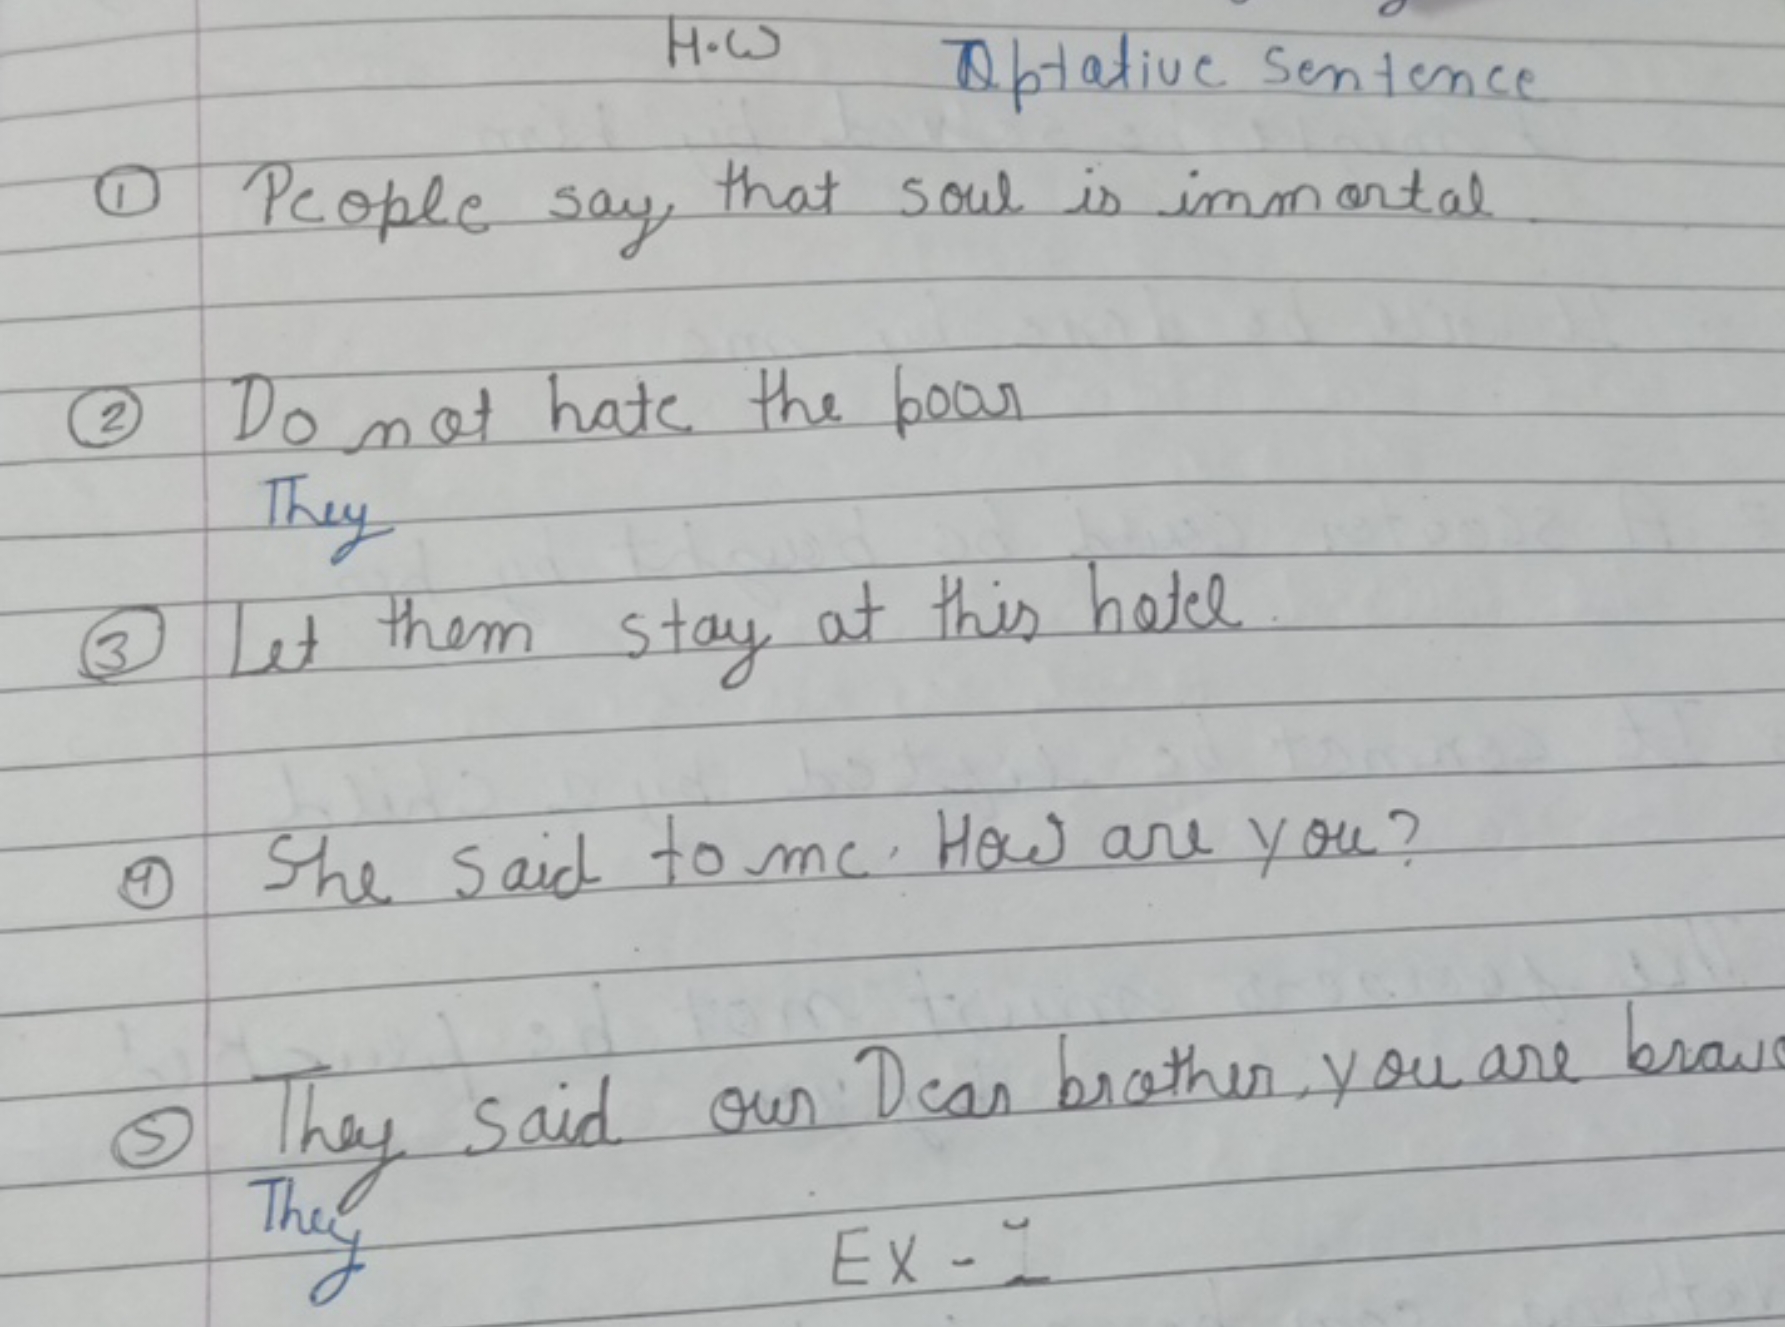 H.W Optative Sentence
① People say, that soul is immortal
② Do not hate the poor
They
③ Let them stay at this hotel.
④ She said to me. How are you?
⑤ They said our Dear brother, you are brave
They
EX - I